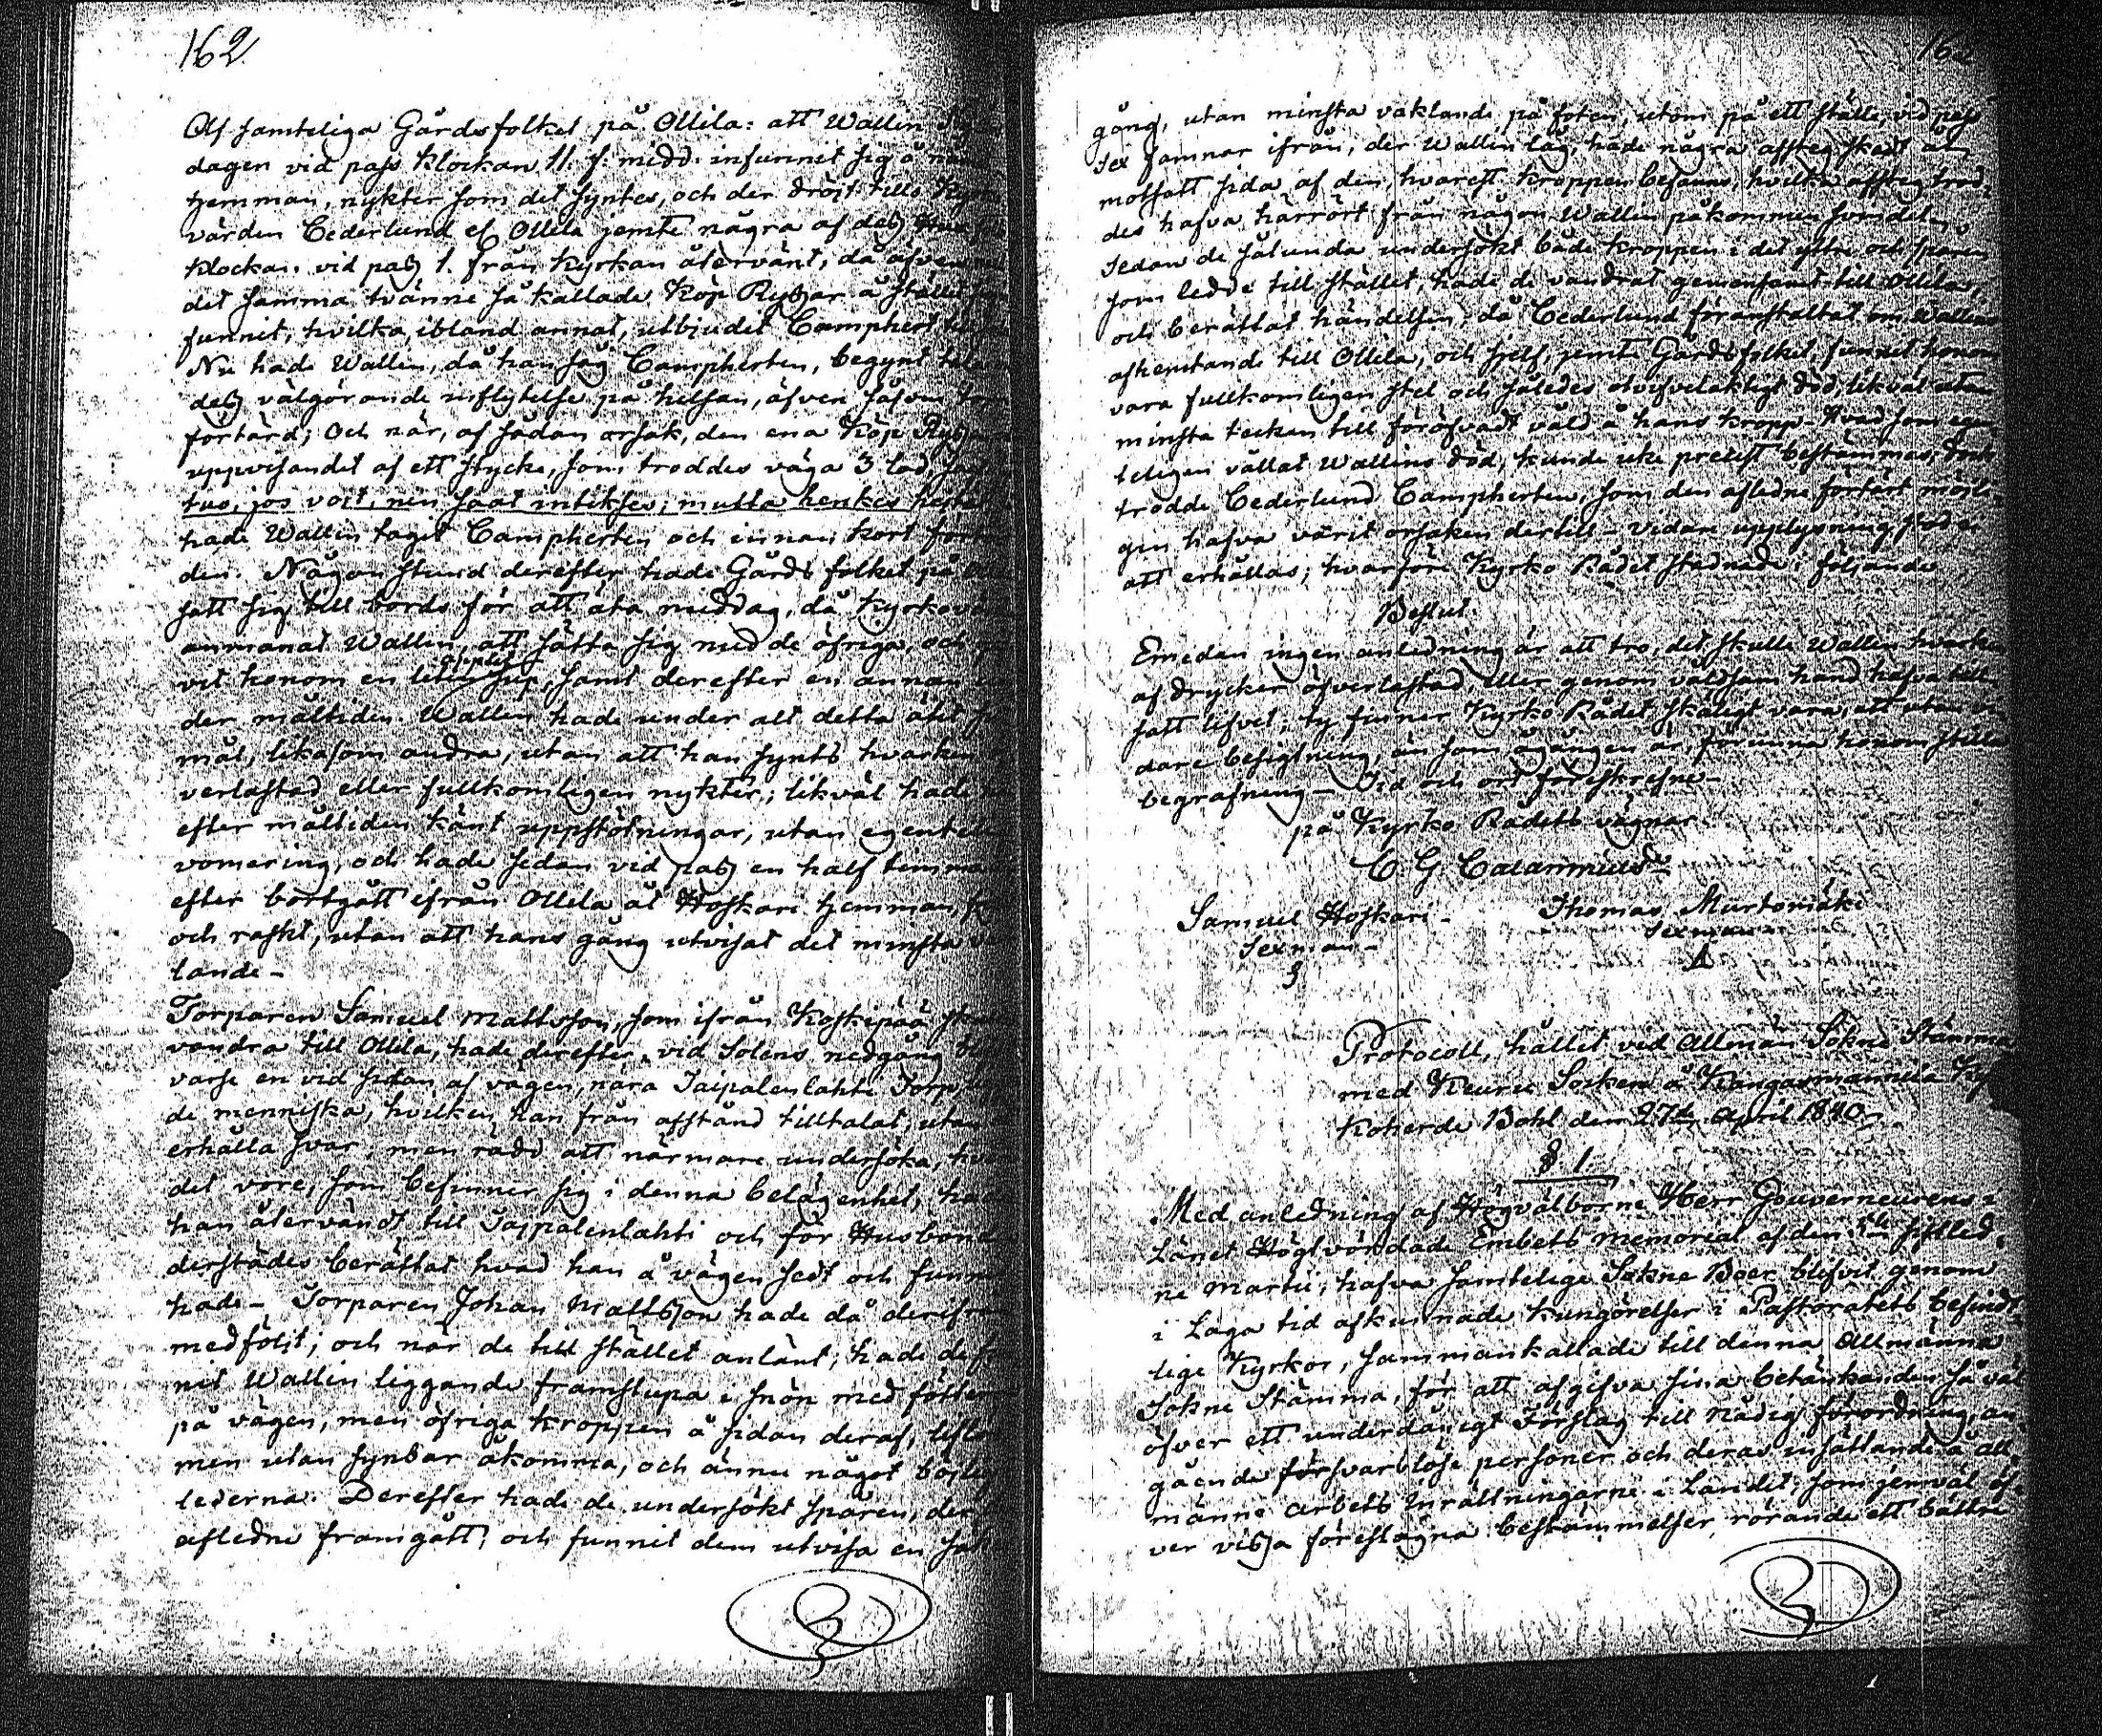 162
Af samteliga Gårdsfolket på Ollila: att Wallin
dagen vid pass klockan 11. f. midd. infunnit sig å
hemman, nykter som det syntes, och der dröjt tills
värden Cederlund el Ollila jemte några af dess
klockan vid pass 1. från Kyrkan återvänt, då äfven
det samma tvänne så kallade Köp Ryssar å stället
funnit, hvilka, ibland annat, utbjudet Camphert
Nu hade Wallin, då han såg Campherten, begynt
dess välgörande inflytelse på helsan, äfven såsom
förtärd; Och när, af sådan orsak, den ena Köp
uppvisandet af ett stycke, som troddes väga 3 lod
tuo, jos voit, nin saat intiksses, mutta henkes
hade Wallin tagit Campherten och innan kort
den. Någon stund derefter hade Gårds folket på
satt sig till bords för att äta middag, då Kyrkovä
anmanat Wallin, att sätta sig med de öfriga, och
vit honom en liten sup, samt derefter en annan
der måltiden. Wallin hade under alt detta ätit
mål, likasom andra, utan att han synts hvarken
verlastad eller fullkomligen nykter; likväl hade
efter måltiden känt uppstötningar, utan egentelig
vomering, och hade sedan vid pass en half timma
efter bortgått ifrån Ollila åt Hoskari hemman,
och raskt, utan att hans gång utvisat det minsta
lande –
Torparen Samuel Mattsson, som ifrån Koskipää
vandra till Ollila, hade derefter vid Solens nedgång
varse en vid sidan af vägen, nära Taipalenlahti Torp,
de menniska, hvilken han från afstånd tilltalat, utan
erhålla svar, men rädd att närmare undersöka,
det vore, som befinner sig i denna belägenhet,
han återvändt till Taipalenlahti och för Husbond
derstädes berättat hvad han å vägen sedt och
hade – Torparen Johan Mattsson hade då derifrån
medföljt; och när de till stället anlänt, hade de
nit Wallin liggande framstupa i snön med fötter
på vägen, men öfriga kroppen å sidan deraf,
men utan synbar åkomma, och ännu något böjlig
lederna. Derefter hade de undersökt spåren, der
afledne framgått, och funnit dem utvisa en
162
gång, utan minsta vaklande på foten, utom på ett ställe, vid pass
sex famnar ifrån, der Wallin låg, hade några afsteg skedt åt
motsatt sida af den, hvarest kroppen befanns, hvilka afsteg trod
des hafva härrört från någon Wallin påkommen svindel
Sedan de sålunda undersökt både kroppen i det yttre och spåren
som ledde till stället, hade de vandrat gemensamt till Ollila,
och berättat händelsen, då Cederlund föranstaltat om Wallins
afhemtande till Ollila, och sjelf jemte Gårdsfolket, funnit honom
vara fullkomligen stel och således otvifvelaktigt död, likväl utan
minsta tecken till föröfvadt våld å hans kropp – Hvad som egen
teligen vållat Wallins död, kunde icke precist bestämmas, dock
trodde Cederlund Campherten, som den afledne förtärt möjli
gen hafva värit orsaken dertill – Vidare upplysning stod ei
att erhållas; hvarföre Kyrko Rådet stadnade i följande
Beslut:
Emedan ingen anledning är att tro, det skulle Wallin hvarken
af drycker öfverlastad, eller genom våldsam hand hafva till
satt lifvet; ty finner Kyrko Rådet skäligt vara, att utan vi
dare besigtning, än som å gången är, förunna honom stilla
begrafning – Tid och ort föreskrefne –
på Kyrko Rådets vägnar.
C. G. Calamnius
Samuel Hoskari – Thomas Murtomäki
Sexman – Sexman
Protocoll, hållet vid Allmän Sokne Stämma
med Keuru Socken å Kangasmannila
Koherde Bohl den 27de April 1840.
§. 1.
Med anledning af Högvälborne Herr Gouverneurens i
Länet Högtvördade Embets Memorial af den sistled
ne Martii; hafva samtelige Sokne Boer blifvit genom
i Laga tid afkunnade kungörelser i Pastoratets befindt
lige Kyrkor, sammankallade till denna Allmänna
Sokne Stämma, för att afgifva sina betänkanden så väl
öfver ett underdånigt Förslag till nådig förordning, an
gående försvarslöse personer och deras insättande å all
männa arbets inrättningarne i Landet, som jemväl öf
ver vissa föreslagna bestämmelser, rörande ett bättre